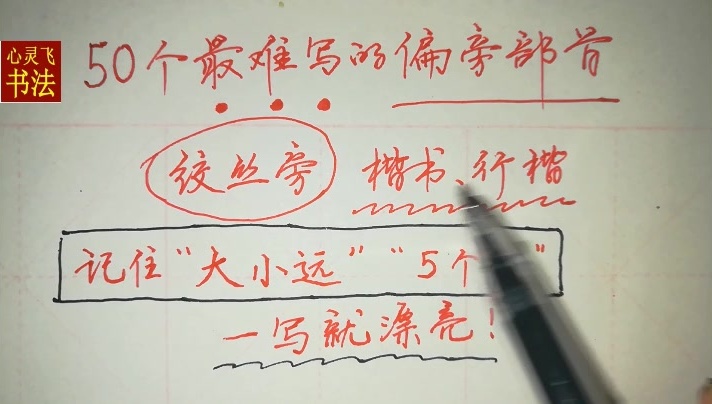 心灵飞
书法
50个最难写的偏旁部首
绞丝旁 楷书、行楷
记住“大小远”“5个”
一写就漂亮！